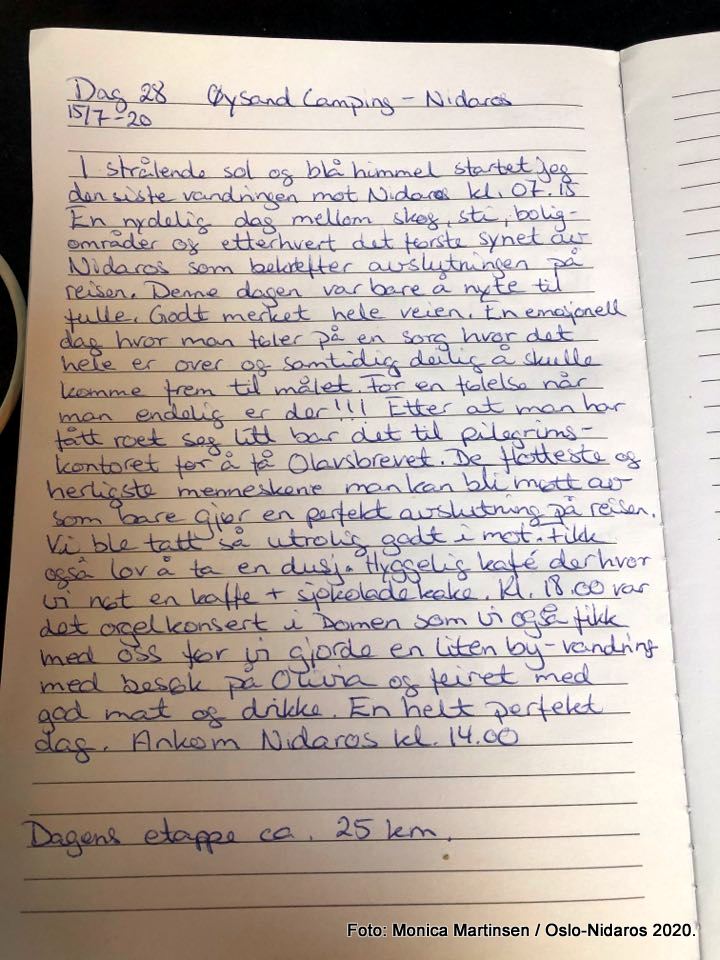 Dag 28 Øysand Camping - Nidaros
15/7-20
I strålende sol og blå himmel startet jeg
den siste vandringen mot Nidaros kl. 07.15
En nydelig dag mellom skog, sti, bolig-
områder og etterhvert det første synet av
Nidaros som bekrefter avslutningen på
reisen. Denne dagen var bare å nyte til
fulle. Godt merket hele veien. En emosjonell
dag hvor man føler på en sorg hvor det
hele er over og samtidig deilig å skulle
komme frem til målet. For en følelse når
man endelig er der!!! Etter at man har
fått roet seg litt bar det til pilegrims-
kontoret for å få Olavsbrevet. De flotteste og
herligste menneskene man kan bli møtt av
som bare gjør en perfekt avslutning på reisen.
Vi ble tatt så utrolig godt i mot. Fikk
også lov å ta en dusj. Hyggelig kafé der hvor
vi nøt en kaffe + sjokoladekake. Kl. 18.00 var
det orgelkonsert i Domen som vi også fikk
med oss før vi gjorde en liten by-vandring
med besøk på Olivia og feiret med
god mat og drikke. En helt perfekt
dag. Ankom Nidaros kl. 14.00
Dagens etappe ca. 25 km.
Foto: Monica Martinsen / Oslo-Nidaros 2020.